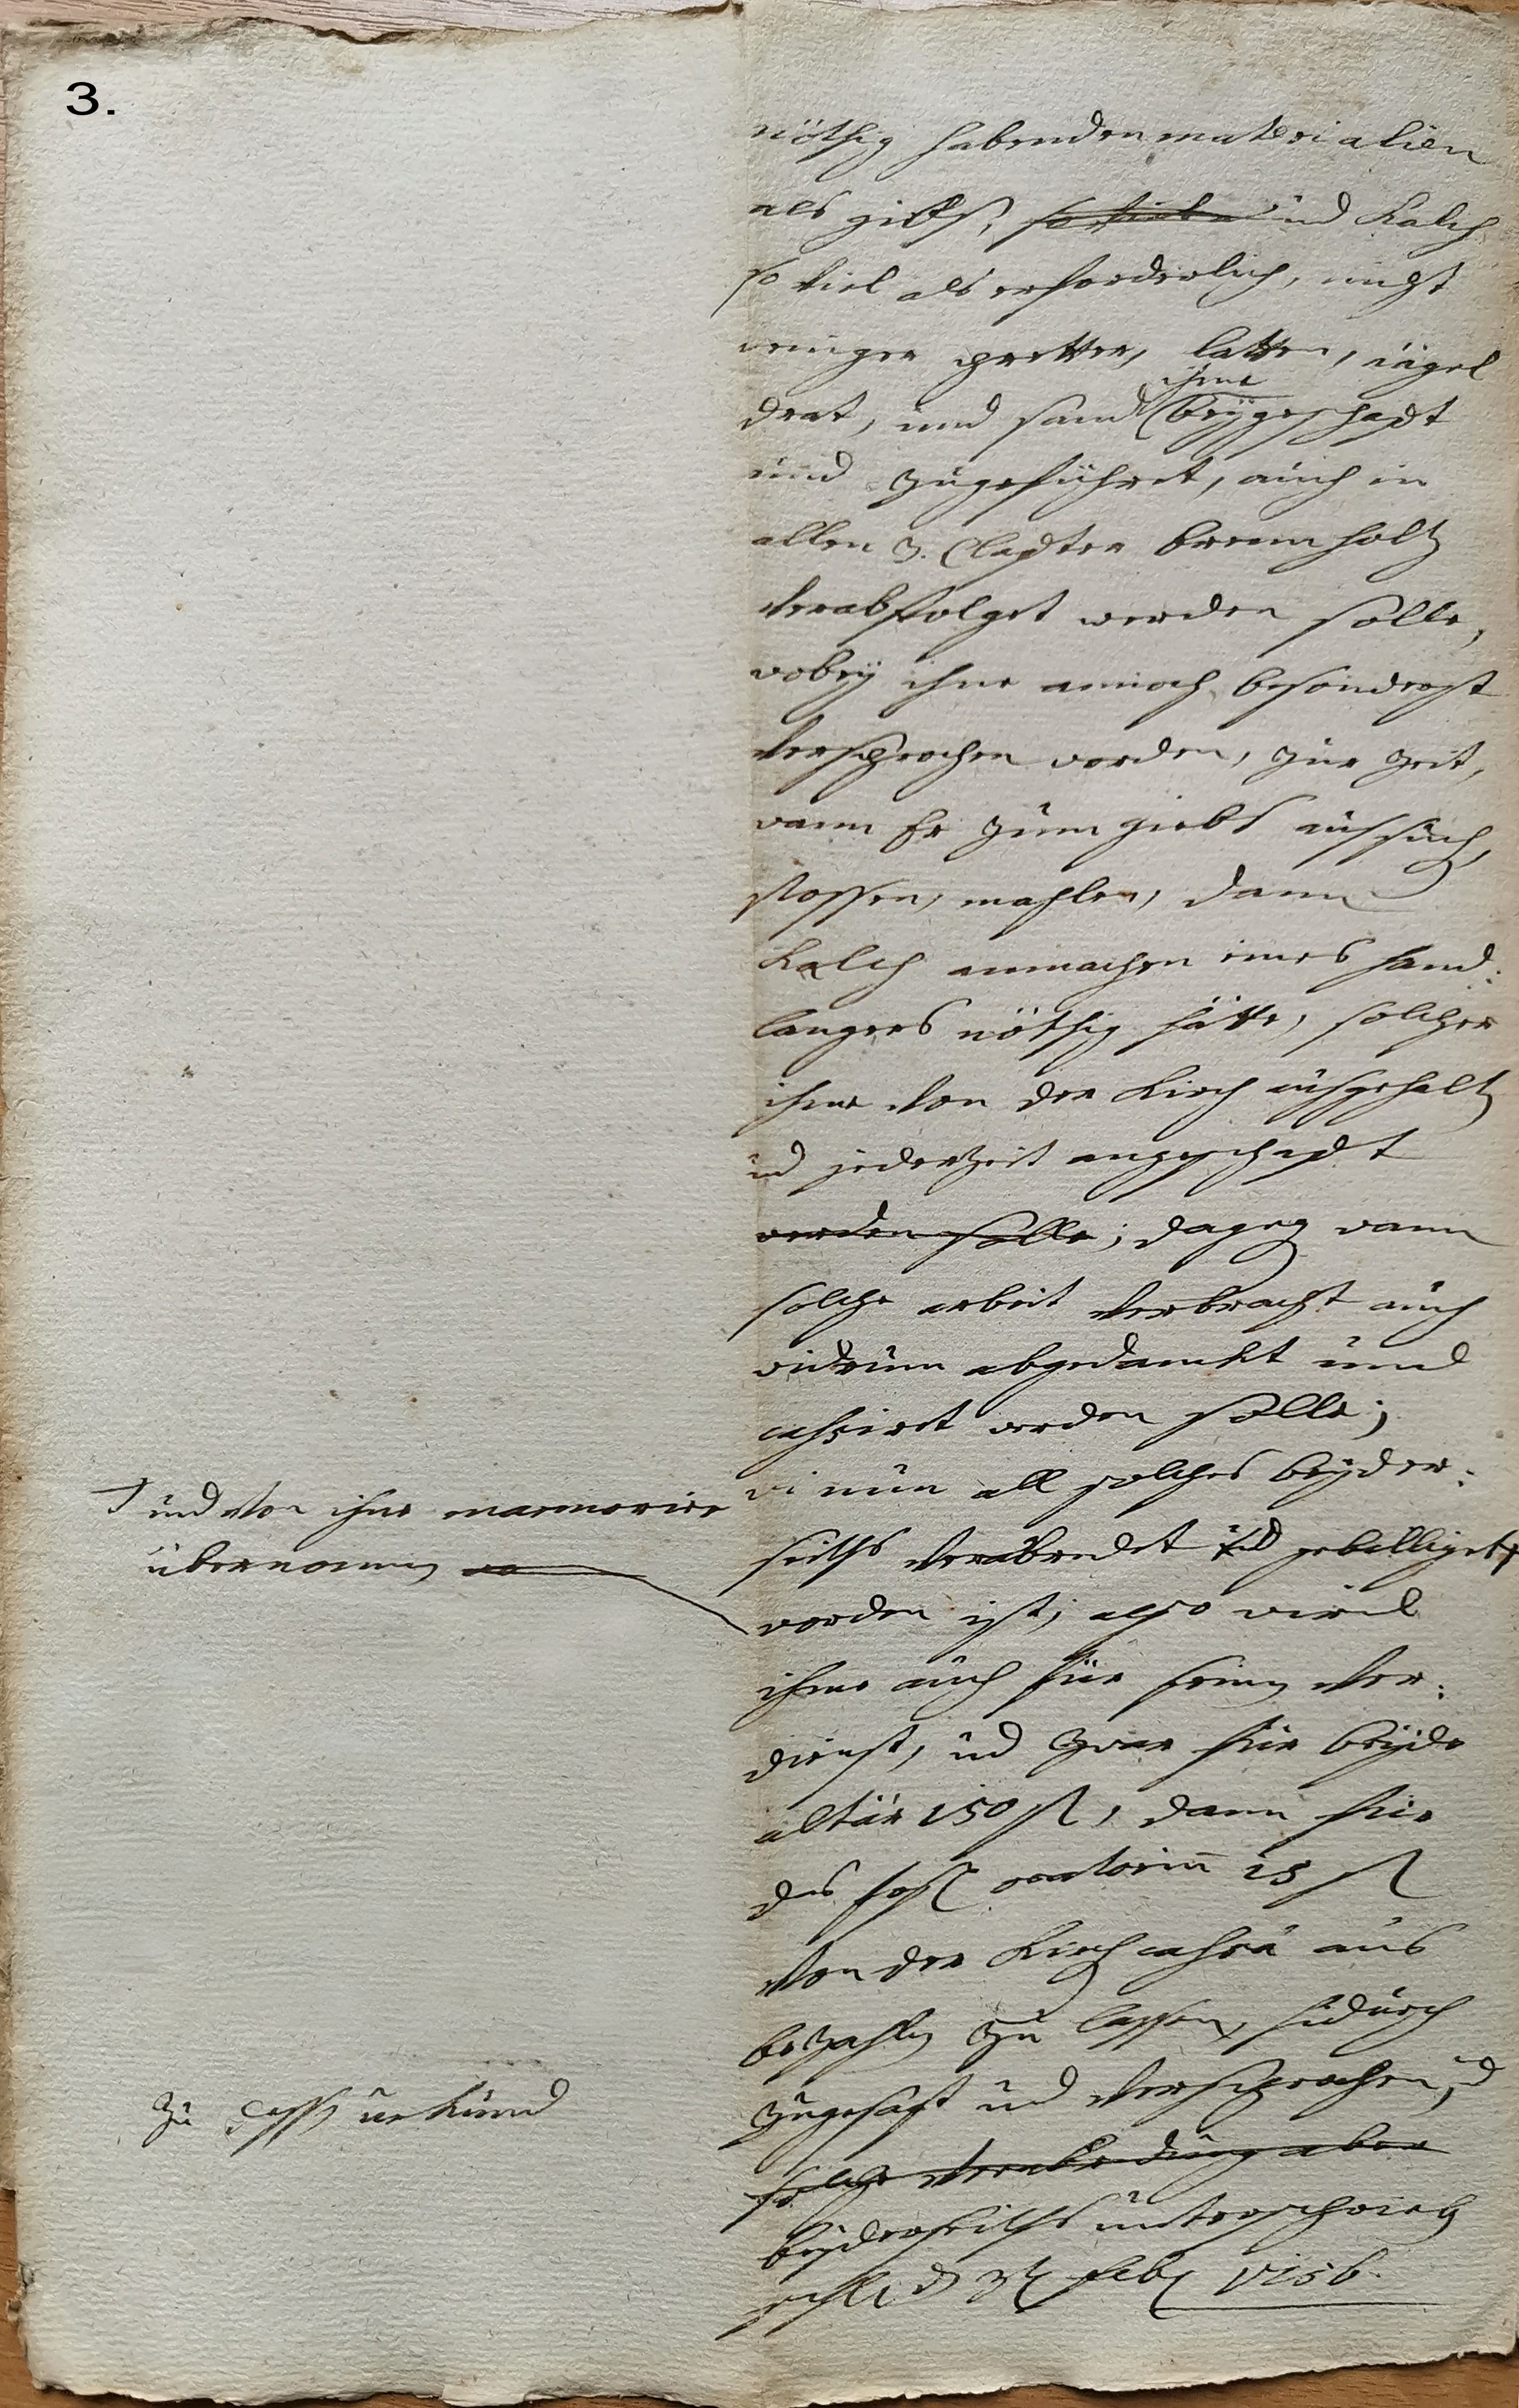 3.
nöthig habenden materialien
als gibs, und Kalch
so viel als erforderlich, nicht
weniger pretter, latten, nägel
ihme
drat, und sand beÿgeschafft
und zugeführet, auch in
allen 3. Claffter brennholtz
verabfolget werden solle,
wobeÿ ihme annoch besonderst
versprochen worden, zur zeit,
wann Er zum giebs aussuch,
stossen, mahlen, dann
Kalch anmachen eines hand:
langers nöthig hätte, solcher
ihme von der Kirch ausgehalt
und jederzeit angeschafft
werden solle; dageg wann
solche arbeit verbracht auch
widrum abgedanckt und
cassiret werden solle;
wi nun all solches beÿder:
† und von ihme marmorirer
übernomen
seiths verabredet und gebilliget †
worden ist; also wird
ihme auch für seinen ver:
dienst, und zwar für beÿde
altär 150 fl, dann für
das oratorium 25 fl
von der Kirch cassa aus
bezahlen zu lassen, hiedurch
zugesagt und versprochen, und
zu dessen urkund
solche verabredung aber
beÿderseiths unterschrieben
d 3t feb. 1756.